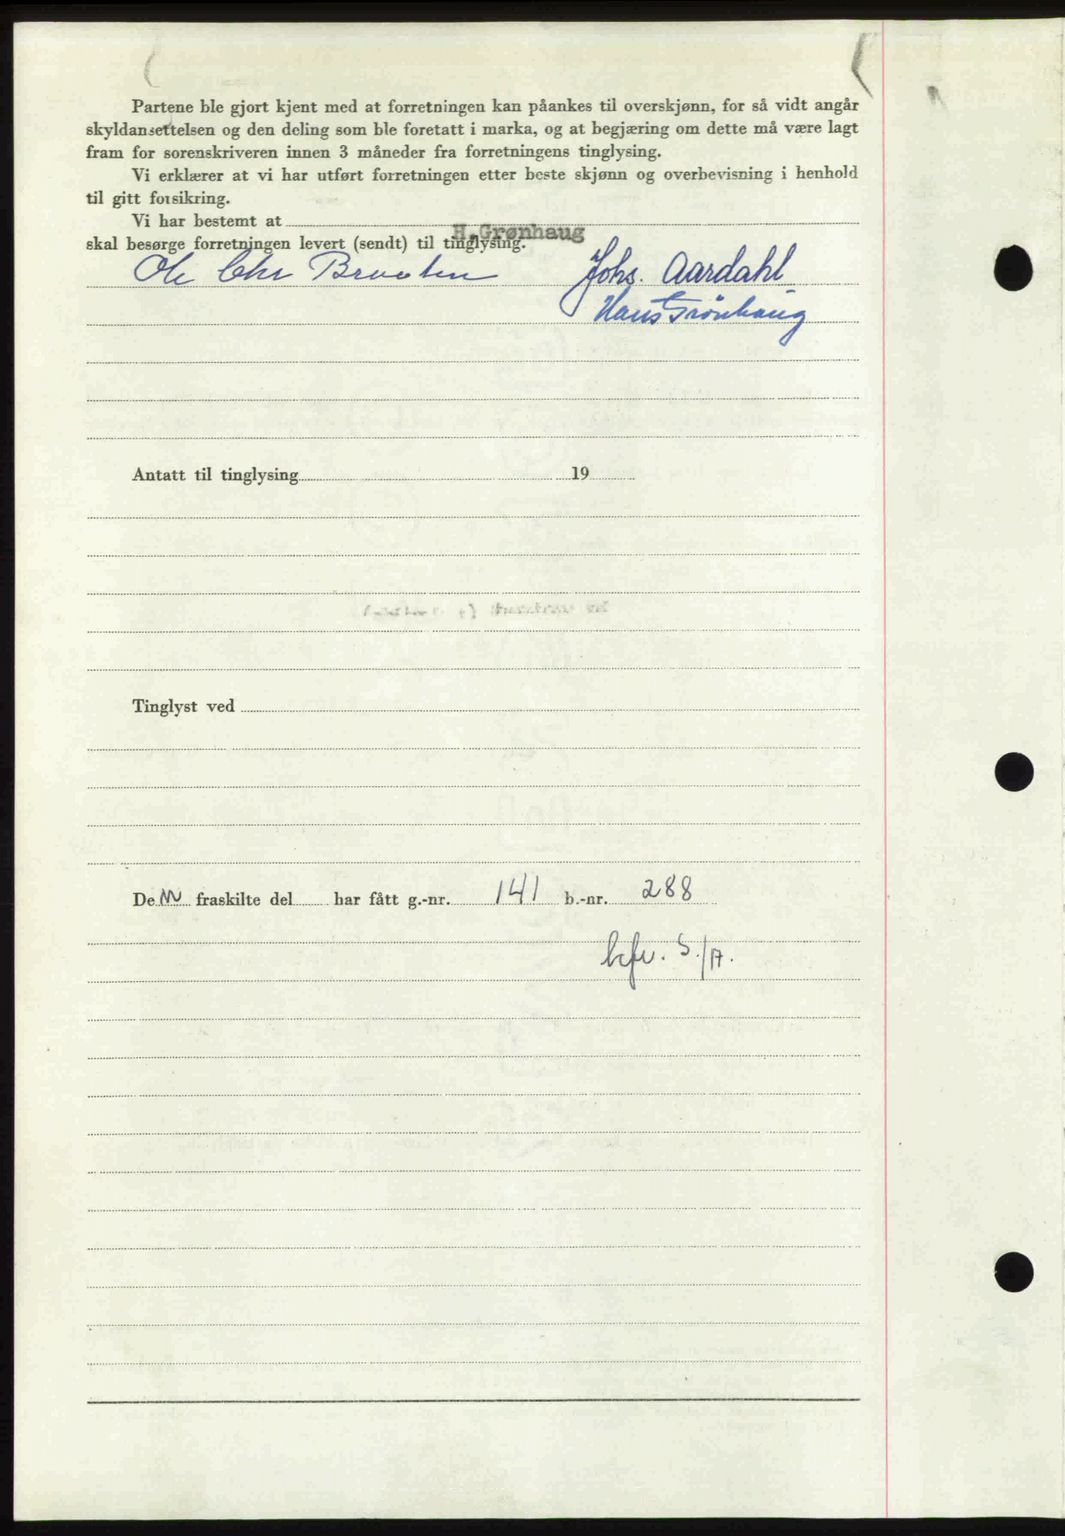 Partene ble gjort kjent med at forretningen kan påankes til overskjønn, for så vidt angår
skyldansettelsen og den deling som ble foretatt i marka, og at begjæring om dette må være lagt
fram for sorenskriveren innen 3 måneder fra forretningens tinglysing.
Vi erklærer at vi har utført forretningen etter beste skjønn og overbevisning i henhold
til gitt forsikring.
Vi har bestemt at
H. Grønhaug
skal besørge forretningen levert (sendt) til tinglysing.
Ole Chr Braaten Johs. Aardahl
Hans Grönhaug
Antatt til tinglysing 19
Tinglyst ved
Den fraskilte del har fått g.-nr. 141 b.-nr. 288